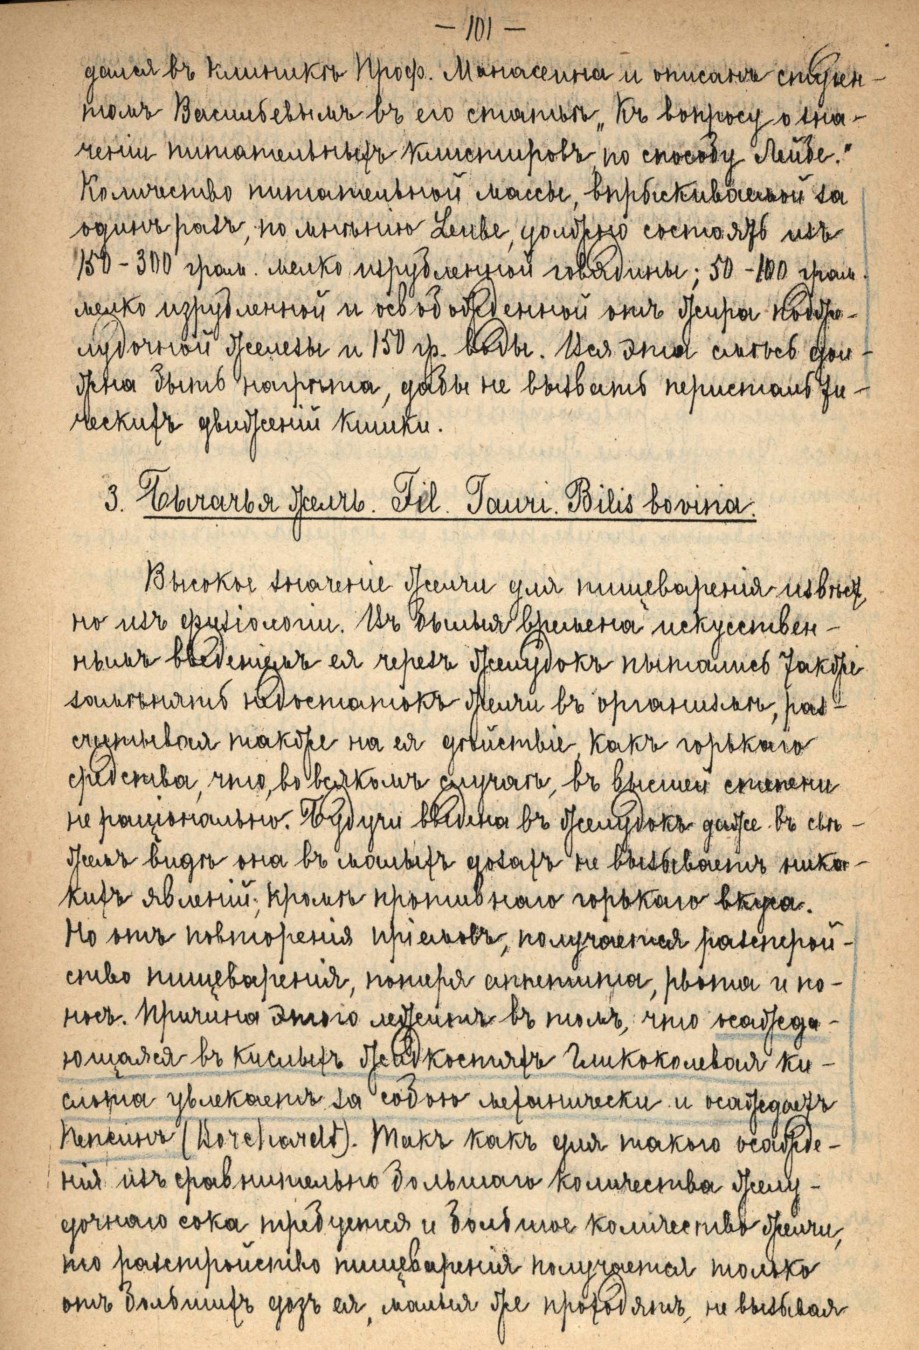 — 101 —
дался въ клиникѣ Проф. Манасеина и описанъ студен-
томъ Васильевымъ въ его статьѣ „Къ вопросу о зна-
ченіи питательныхъ клистировъ по способу Лейбе."
Количество питательной массы, впрыскиваемой за
одинъ разъ, по мнѣнію Leube, должно состоять изъ
150-300 грам. мелко изрубленной говядины; 50-100 грам.
мелко изрубленной и освобожденной отъ жира поджe-
лудочной железы и 150 гр. воды. Вся эта смѣсь дол-
жна быть нагрѣта, дабы не вызвать перистальти-
ческихъ движеній кишки.
3. Бычачья желчь. Fel. Tauri. Bilis bovina.
Высокое значеніе желчи для пищеваренія извѣст-
но изъ физіологіи. Въ былыя времена искусствен-
нымъ введеніемъ ея черезъ желудокъ пытались также
замѣнять недостатокъ желчи въ организмѣ, раз-
считывая также на ея дѣйствіе, какъ горькаго
средства, что, во всякомъ случаѣ, въ высшей степени
не раціонально. Будучи введена въ желудокъ даже въ свѣ-
жемъ видѣ она въ малыхъ дозахъ не вызываетъ ника-
кихъ явленій, кромѣ противнаго горькаго вкуса.
Но отъ повторенія пріемовъ, получается разстрой-
ство пищеваренія, потеря аппетита, рвота и по-
носъ. Причина этого лежитъ въ томъ, что осажда-
ющаяся въ кислыхъ жидкостяхъ гликоколевая ки-
слота увлекаетъ за собою механически и осаждаетъ
пепсинъ (Borchardt). Такъ какъ для такого осажде-
нія изъ сравнительно большаго количества желу-
дочнаго сока требуется и большое количество желчи,
то разстройство пищеваренія получается только
отъ большихъ дозъ ея, малыя же проходятъ, не вызывая